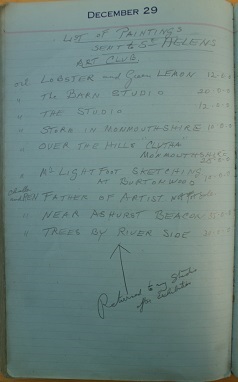 December 29
LIST OF PAINTINGS
SENT TO ST HELENS
ART CLUB.
OIL LOBSTER and Green LEMON 12-0-0
" THE BARN STUDIO 20-0-0
" THE STUDIO 12-0-0
" STORE IN MONMOUTHSHIRE
" OVER THE HILLS CLYTHA"
MONMOUTHSHIRE
" Mr LIGHTFOOT SKETCHING
AT BURTONWOOD
and PEN FATHER OF ARTIST not for sale
" NEAR ASHURST BEACON
" TREES BY RIVER SIDE
Returned to my Studio
after Exhibition